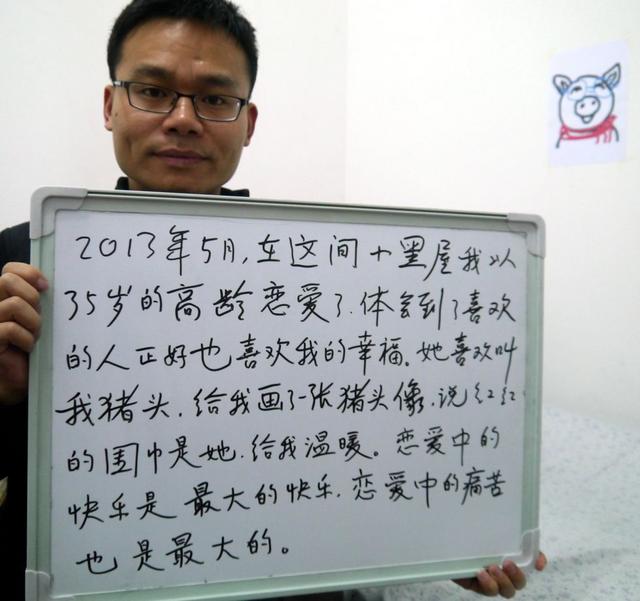 2013年5月,在这间小黑屋我以
35岁的高龄恋爱了.体会到了喜欢
的人正好也喜欢我的幸福.她喜欢叫
我猪头.给我画了一张猪头像.说红红
的围巾是她.给我温暖。恋爱中的
快乐是最大的快乐.恋爱中的痛苦
也是最大的。